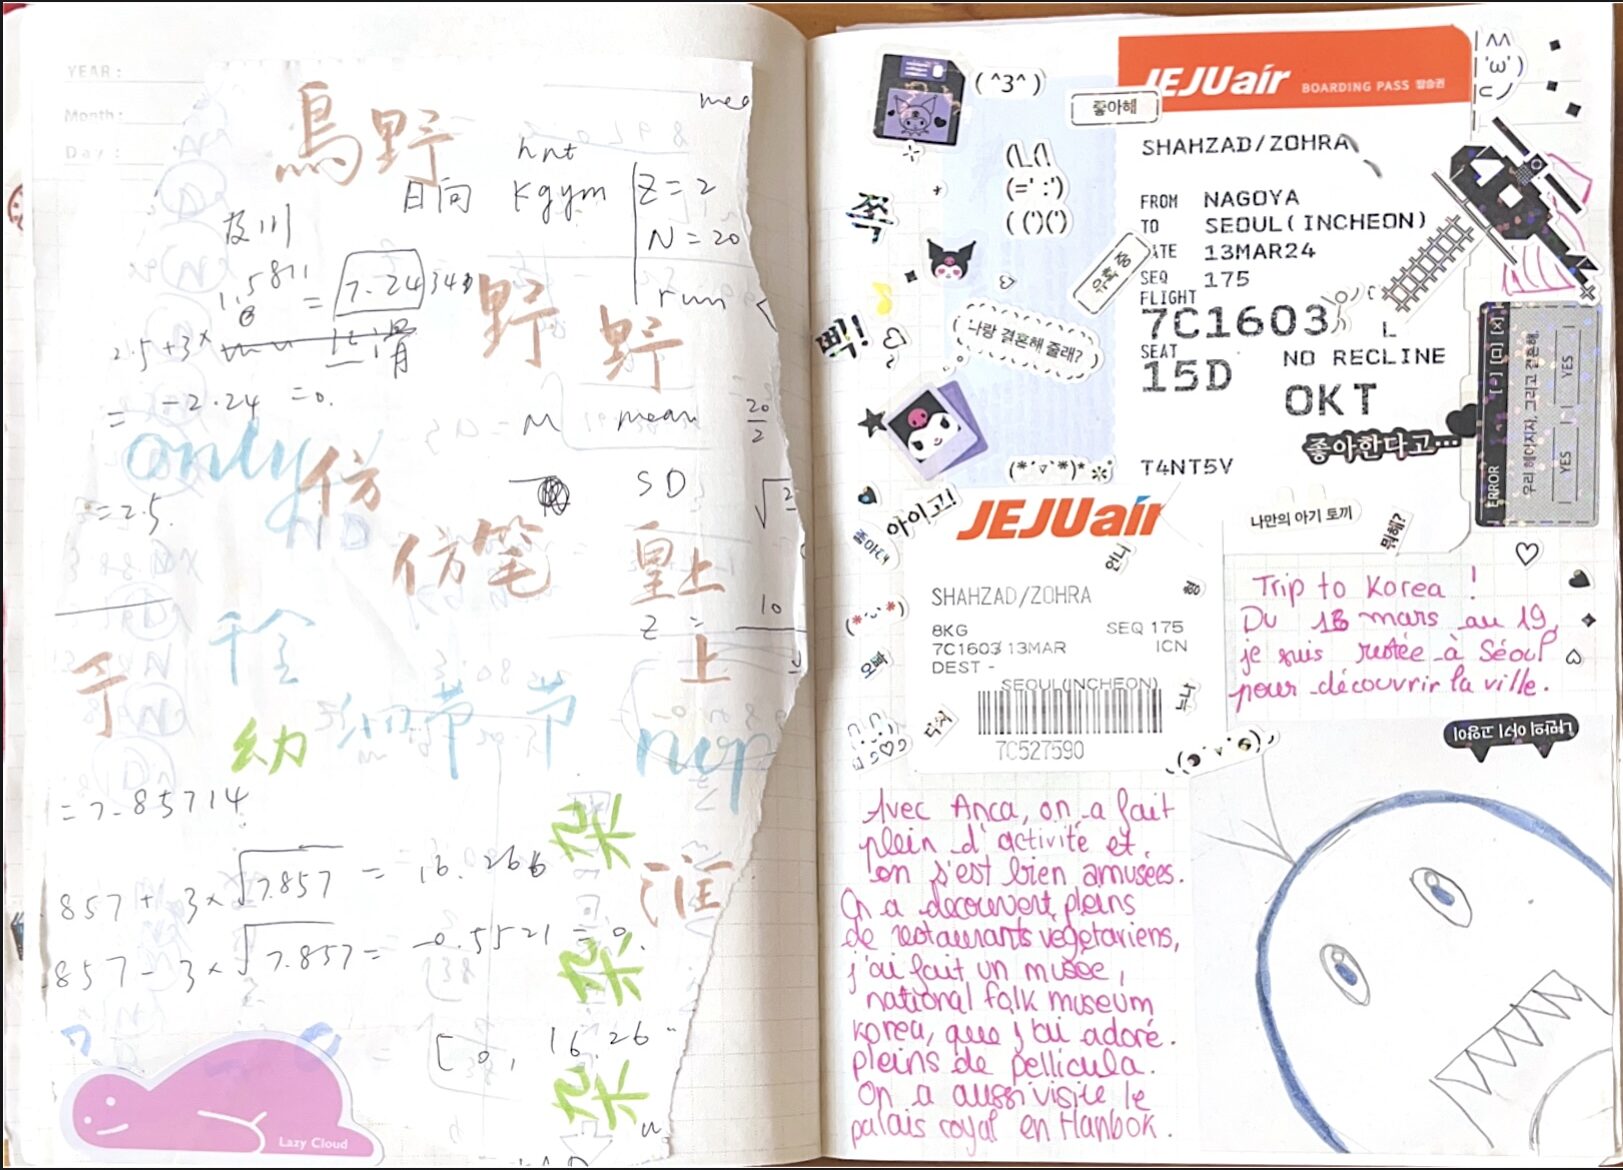 YEAR :
Month :
Day :
鳥野
hnt
日向
kgym
Z = 2
N = 20
run <
及川
1.5811
= 7.24 34
2.5+3×
上滑
= -2.24 = 0.
野
野
M
mean
20
2
only
仿
SD
= 2.5.
仿笔
皇上
Z =
10
上
千金
幼
细节
节
= 7.85714
857 + 3 × √7.857 = 16.266
857 - 3 × √7.857 = -0.5521 = 0.
杂
准
杂
[ 0, 16.26
杂
Lazy Cloud
( ^3^ )
좋아해
JEJUair BOARDING PASS 탑승권
SHAHZAD/ZOHRA
FROM NAGOYA
TO SEOUL(INCHEON)
DATE 13MAR24
SEQ 175
FLIGHT
7C1603
L
SEAT
15D
NO RECLINE
OKT
T4NT5V
쪽
삑!
나랑 결혼해 줄래?
좋아한다고...
ERROR
우리 헤어지자, 그리고 결혼해.
YES
YES
(*´▽`*)
아이고!
나만의 아기 토끼
뭐해?
언니
오빠
누나
JEJUair
SHAHZAD/ZOHRA
8KG SEQ 175
7C1603 13MAR ICN
DEST -
SEOUL(INCHEON)
7C527590
Trip to Korea !
Du 13 mars au 19,
je suis restée à Séoul
pour découvrir la ville.
나만의 아기 고양이
Avec Anca, on a fait
plein d'activité et
on s'est bien amusées.
On a decouvert pleins
de restaurants vegetariens,
j'ai fait un musée,
national folk museum
korea, que j'ai adoré.
pleins de pellicula.
On a aussi visite le
palais royal en Hanbok.